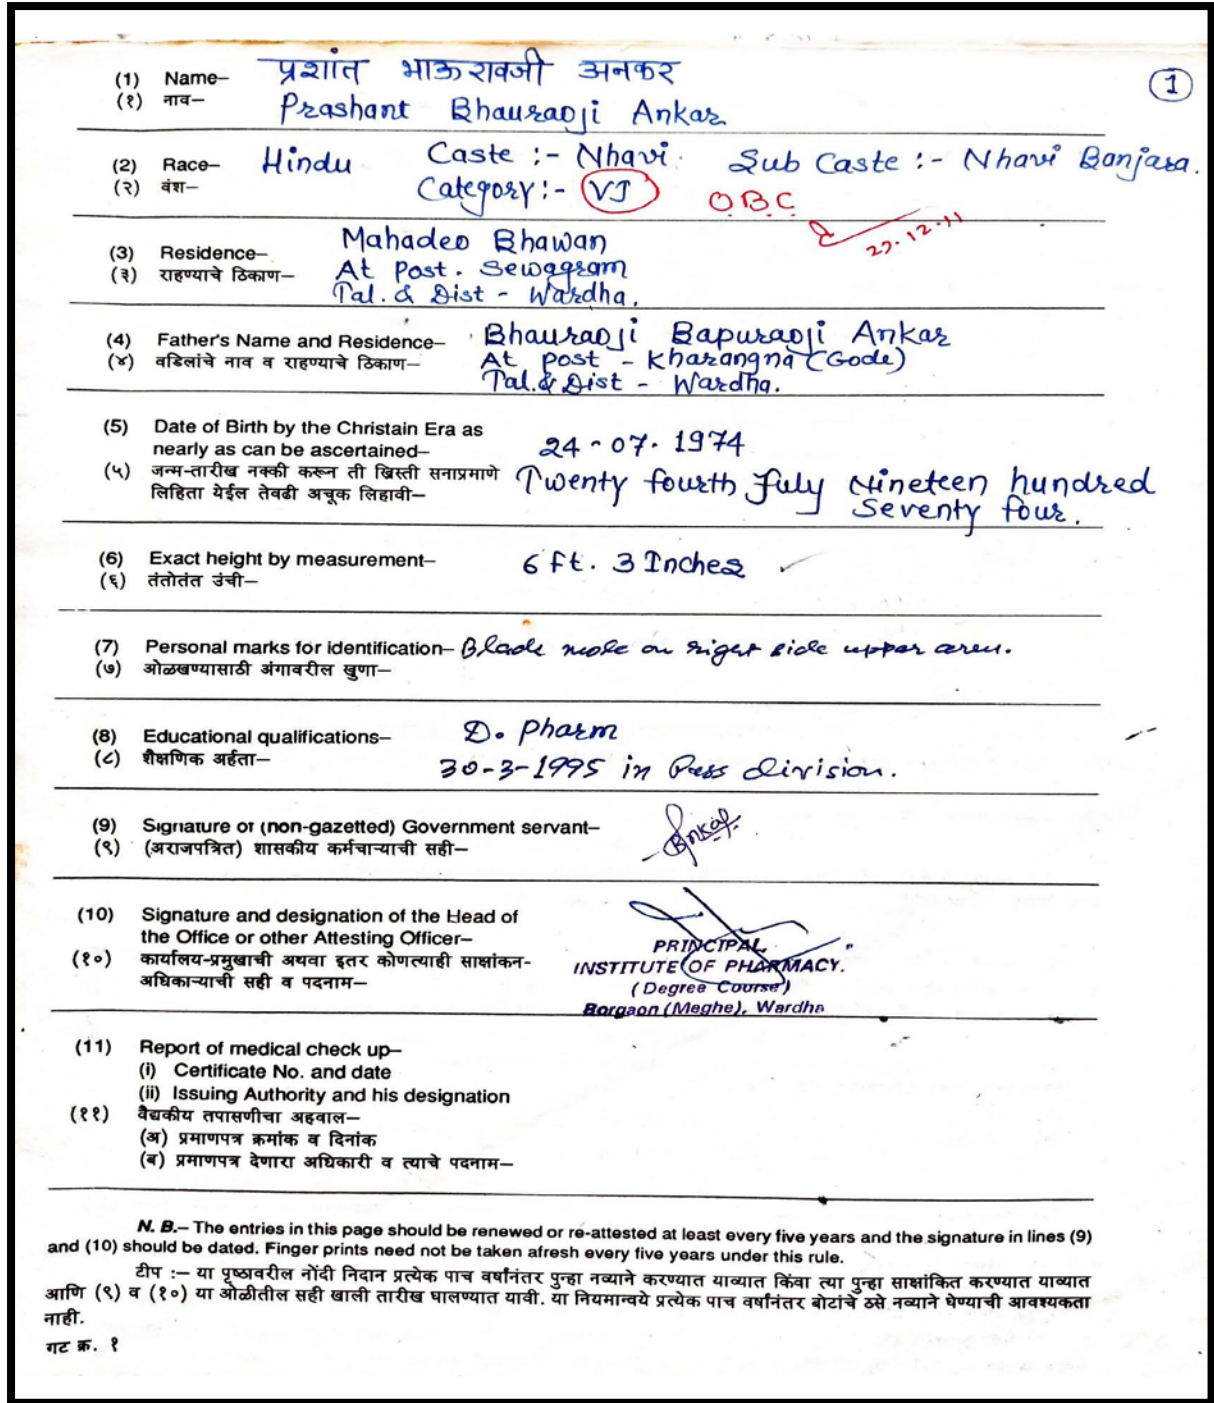 1
(1) Name– प्रशांत भाऊरावजी अनकर
(१) नाव– Prashant Bhauraoji Ankar
(2) Race– Hindu Caste :- Nhavi. Sub Caste :- Nhavi Banjara.
(२) वंश– Category :- VJ O.B.C
27.12.11
(3) Residence– Mahadeo Bhawan
(३) राहण्याचे ठिकाण– At Post. Sewagram
Tal. & Dist - Wardha.
(4) Father's Name and Residence– Bhauraoji Bapuraoji Ankar
(४) वडिलांचे नाव व राहण्याचे ठिकाण– At post - Kharangna (Gode)
Tal.& Dist - Wardha.
(5) Date of Birth by the Christain Era as
nearly as can be ascertained– 24-07-1974
(५) जन्म-तारीख नक्की करून ती ख्रिस्ती सनाप्रमाणे Twenty fourth July Nineteen hundred
लिहिता येईल तेवढी अचूक लिहावी– Seventy four.
(6) Exact height by measurement– 6 ft. 3 Inches
(६) तंतोतंत उंची–
(7) Personal marks for identification– mole on right side upper
(७) ओळखण्यासाठी अंगावरील खुणा–
(8) Educational qualifications– D. Pharm
(८) शैक्षणिक अर्हता– 30-3-1995 in Pass division.
(9) Signature of (non-gazetted) Government servant–
(९) (अराजपत्रित) शासकीय कर्मचाऱ्याची सही– Ankar
(10) Signature and designation of the Head of
the Office or other Attesting Officer– PRINCIPAL
(१०) कार्यालय-प्रमुखाची अथवा इतर कोणत्याही साक्षांकन- INSTITUTE OF PHARMACY.
अधिकाऱ्याची सही व पदनाम– (Degree Course)
Borgaon (Meghe), Wardha
(11) Report of medical check up–
(i) Certificate No. and date
(ii) Issuing Authority and his designation
(११) वैद्यकीय तपासणीचा अहवाल–
(अ) प्रमाणपत्र क्रमांक व दिनांक
(ब) प्रमाणपत्र देणारा अधिकारी व त्याचे पदनाम–
N. B.– The entries in this page should be renewed or re-attested at least every five years and the signature in lines (9)
and (10) should be dated. Finger prints need not be taken afresh every five years under this rule.
टीप :– या पृष्ठावरील नोंदी निदान प्रत्येक पाच वर्षांनंतर पुन्हा नव्याने करण्यात याव्यात किंवा त्या पुन्हा साक्षांकित करण्यात याव्यात
आणि (९) व (१०) या ओळीतील सही खाली तारीख घालण्यात यावी. या नियमान्वये प्रत्येक पाच वर्षांनंतर बोटांचे ठसे नव्याने घेण्याची आवश्यकता
नाही.
गट क्र. १